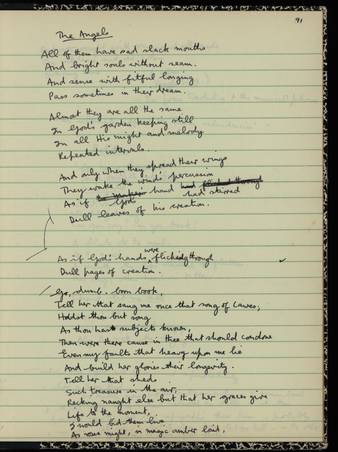 91
The Angels
All of them have sad slack mouths
And bright souls without seam.
And sense with fitful longing
Pass sometimes in their dream.
Almost they are all the same
In God's garden keeping still
In all His might and melody
Repeated intervals.
And only when they spread their wings
They wake the wind's percussion
As if God's hand had stirred
Dull leaves of his creation.
As if God's hands were flicking through
Dull pages of creation.
Go, dumb-born book,
Tell her that sang me once that song of Lawes,
Hadst thou but song
As thou hast subjects known,
Then were there cause in thee that should condone
Even my faults that heavy upon me lie
And build her glories their longevity.
Tell her that sheds
Such treasure in the air,
Recking naught else but that her graces give
Life to the moment,
I would bid them live
As roses might, in magic amber laid,